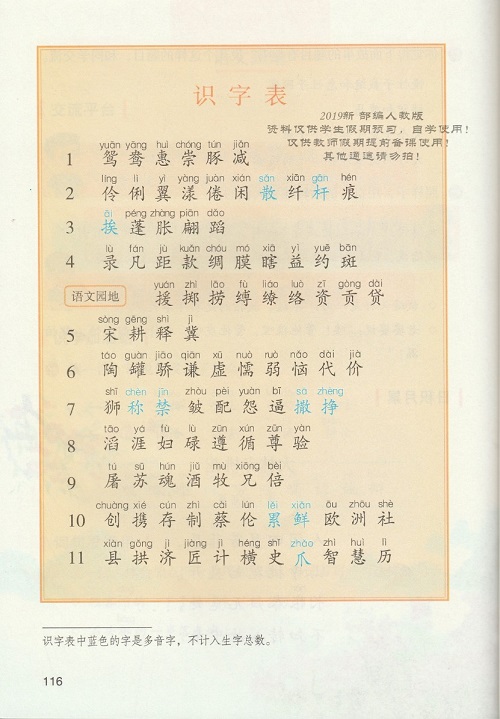 识字表
2019新 部编人教版
资料仅供学生假期预习,自学使用!
仅供教师假期提前备课使用!
其他逗逼请勿拍!
yuān yāng huì chóng tún jiǎn
1 鸳 鸯 惠 崇 豚 减
líng lì yì yàng juàn xián sǎn xiān gǎn hén
2 伶 俐 翼 漾 倦 闲 散 纤 杆 痕
ái péng zhàng piān dǎo
3 挨 蓬 胀 翩 蹈
lù fán jù kuǎn chóu mó xiā yì yuē bān
4 录 凡 距 款 绸 膜 瞎 益 约 斑
yuán zhì lāo fù liáo luò zī gòng dài
语文园地 援 掷 捞 缚 缭 络 资 贡 贷
sòng gēng shì jì
5 宋 耕 释 冀
táo guàn jiāo qiān xū nuò ruò nǎo dài jià
6 陶 罐 骄 谦 虚 懦 弱 恼 代 价
shī chèn jīn zhòu pèi yuàn bī sā zhēng
7 狮 称 禁 皱 配 怨 逼 撒 挣
tāo yá fù lù zūn xún zūn yàn
8 滔 涯 妇 碌 遵 循 尊 验
tú sū hún jiǔ mù xiōng bèi
9 屠 苏 魂 酒 牧 兄 倍
chuàng xié cún zhì cài lún lěi xiān ōu zhōu shè
10 创 携 存 制 蔡 伦 累 鲜 欧 洲 社
xiàn gǒng jì jiàng jì héng shǐ zhǎo zhì huì lì
11 县 拱 济 匠 计 横 史 爪 智 慧 历
识字表中蓝色的字是多音字,不计入生字总数。
116